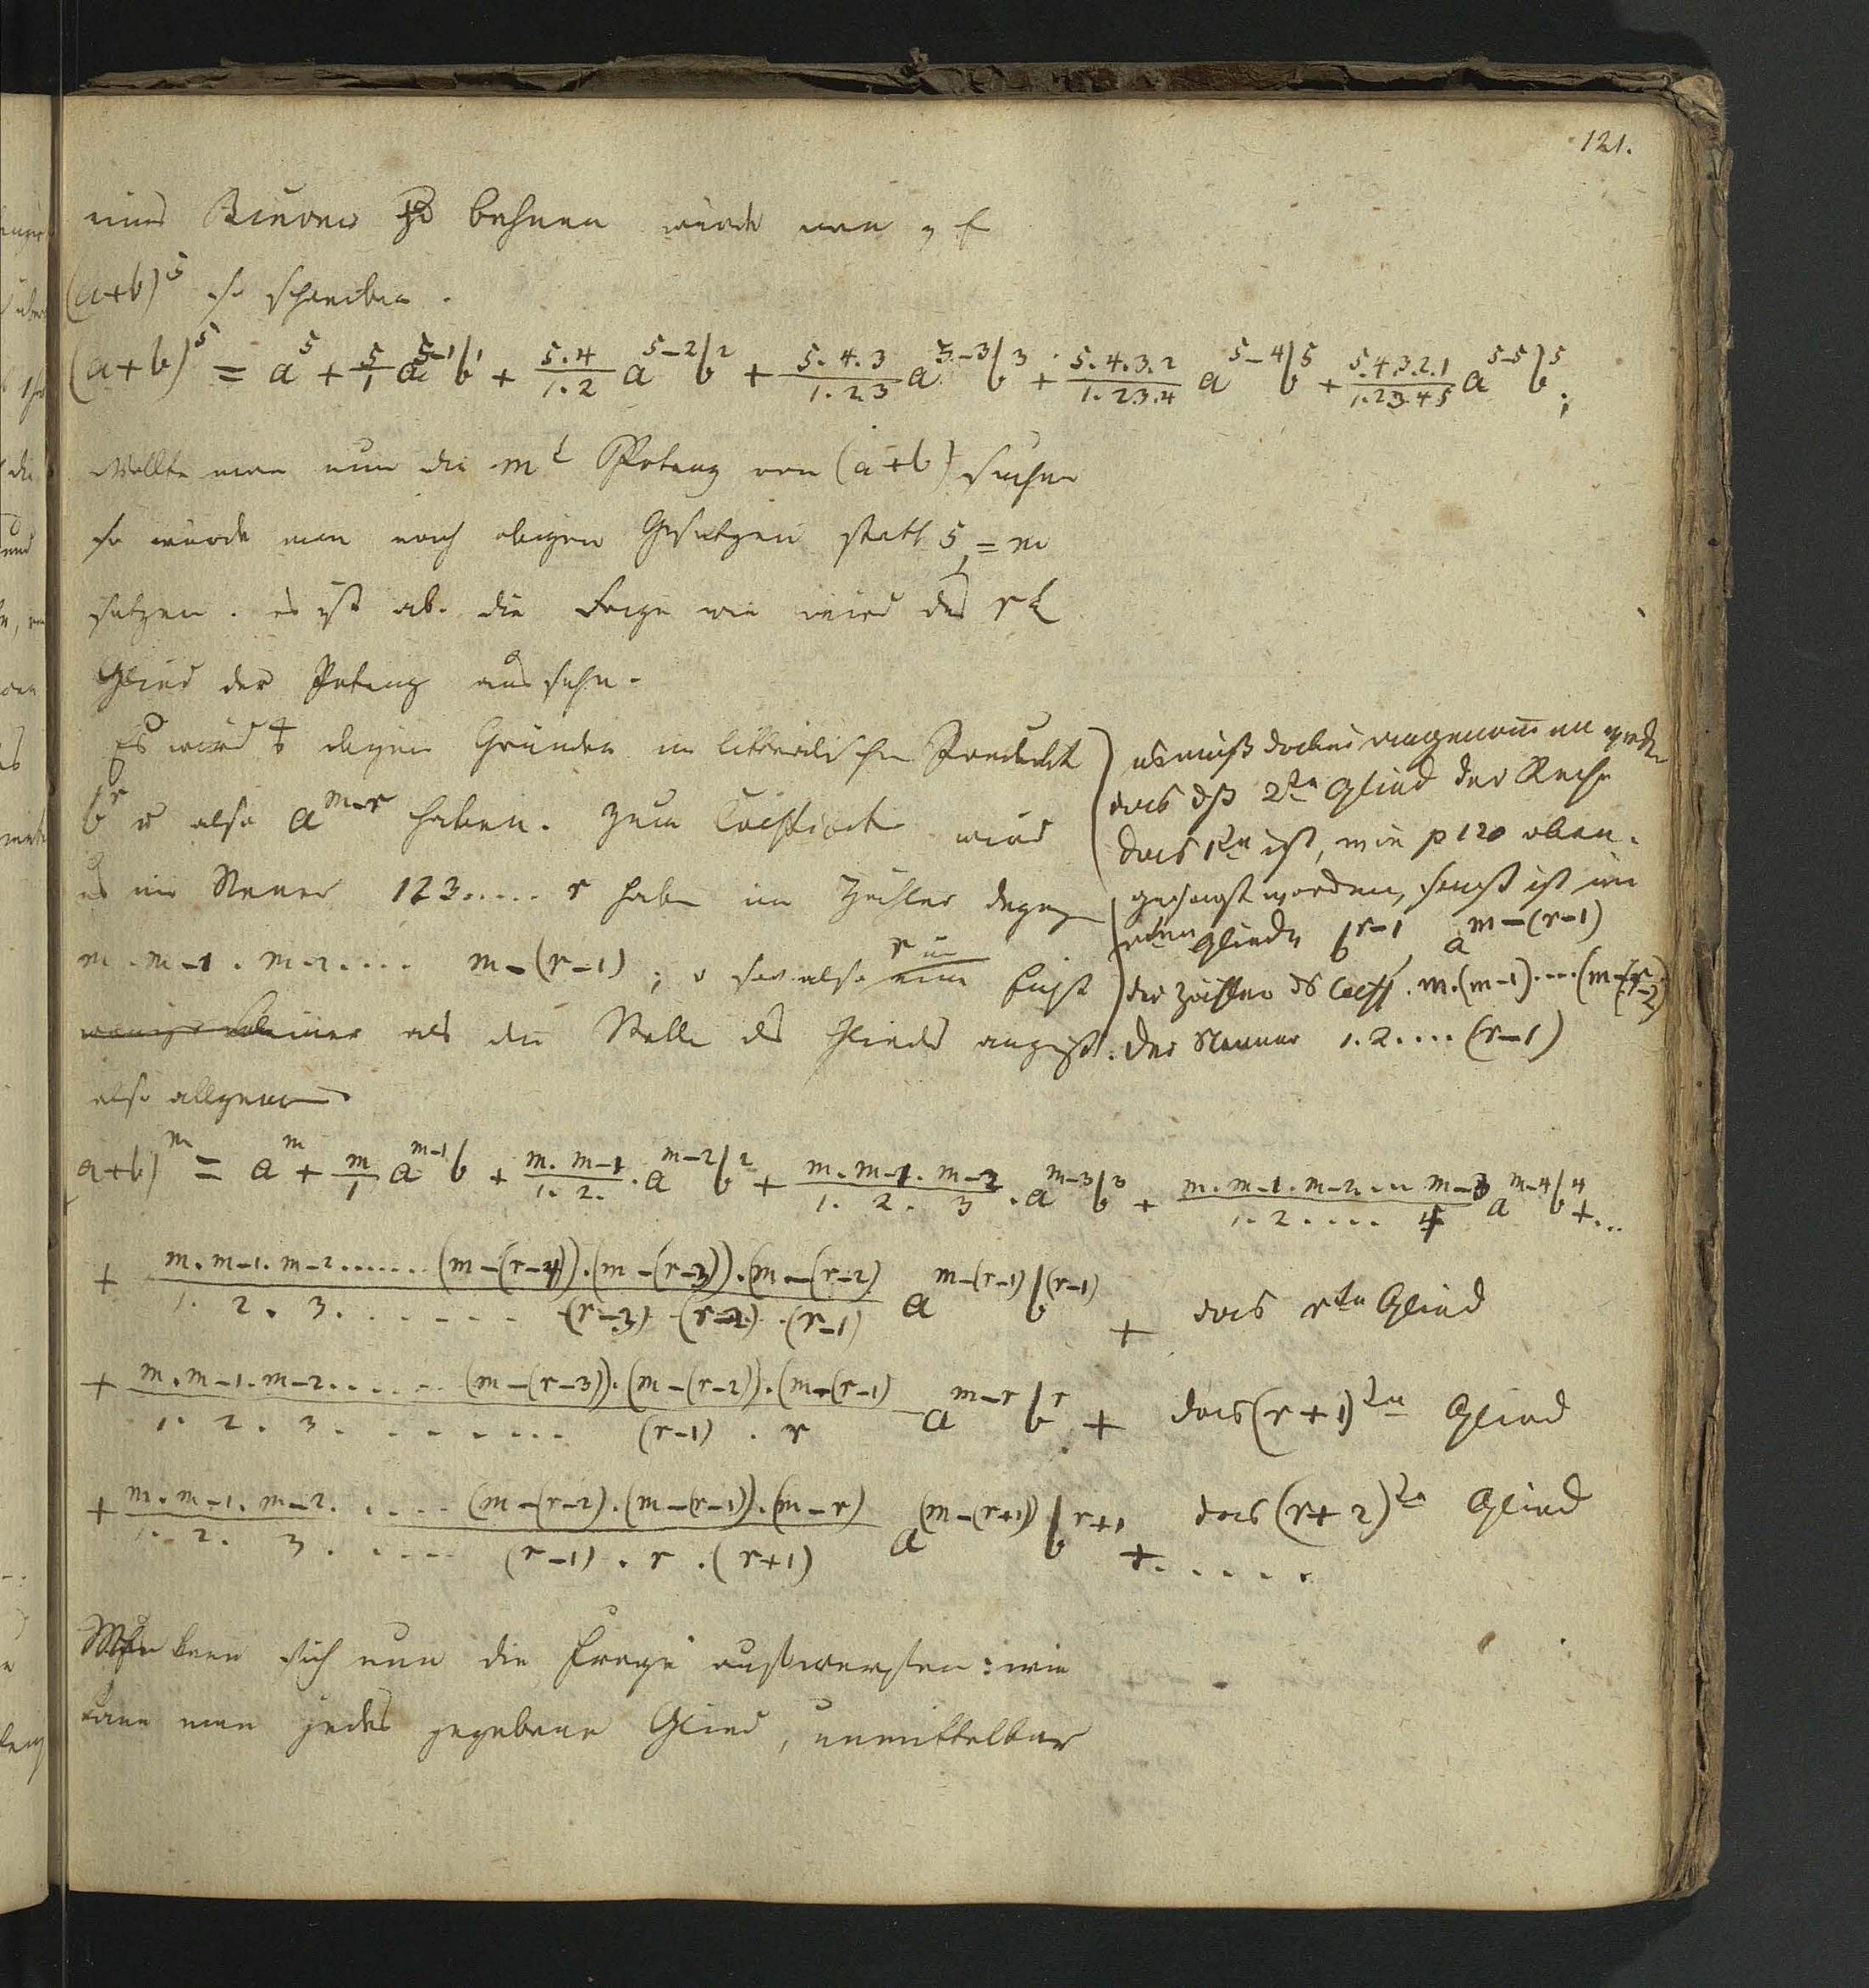 121.
eines zu würde man z. E.
(a+b)^5 so schreiben.
(a+b)^5 = a^5 + 5/1 a^{5-1} b^1 + 5.4/1.2 a^{5-2} b^2 + 5.4.3/1.2.3 a^{5-3} b^3 + 5.4.3.2/1.2.3.4 a^{5-4} b^5 + 5.4.3.2.1/1.2.3.4.5 a^{5-5} b^5;
Wollte man nun die m^t Potenz von (a+b) suchen
so würde man nach obigen Gesetzen statt 5, = m
setzen. es ist ab. die Frage wie wird das r^t
Glied der Potenz aussehn.
Es wird obigen Gründen im Produckt
b^r u also a^{m-r} haben. Zum wird
es im Nener 123..... r haben im Zähler dageg
m . m-1 . m-2.... m-(r-1); also r um eins
als die Stelle des Glieds anzeigt.
es muß dabei angenommen werden
das dß 2te Glied der Reihe
das 1te ist, wie p 120 oben.
gesagt worden, sonst ist im
rten Gliede b^{r-1}, a^{m-(r-1)}
der Zähler ds Coeff. m.(m-1)....(m-(r-2)
der Nenner 1.2....(r-1)
also allgemein
a+b)^m = a^m + m/1 a^{m-1} b + m.m-1/1.2. . a^{m-2} b^2 + m.m-1.m-2/1.2.3 . a^{m-3} b^3 + m.m-1.m-2... m-3/1.2.... 4 a^{m-4} b^4 +...
+ m.m-1.m-2......(m-(r-4)).(m-(r-3)).(m-(r-2)/1.2.3.......(r-3).(r-2).(r-1) a^{m-(r-1)} b^{(r-1)} + das rte Glied
+ m.m-1.m-2.......(m-(r-3)).(m-(r-2)).(m-(r-1)/1.2.3.........(r-1).r a^{m-r} b^r + das (r+1)te Glied
+ m.m-1.m-2.....(m-(r-2).(m-(r-1)).(m-r)/1.2.3.....(r-1).r.(r+1) a^{(m-(r+1))} b^{r+1} +..... das (r+2)te Glied
sich nun die Frage aufwerfen: wie
kann man jedes gegebene Glied, unmittelbar